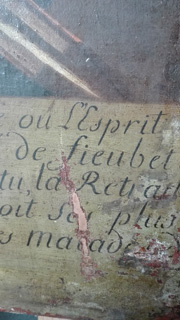 où L'Esprit
de fieubet
tu, la Retrait
oit ses plus
es malades